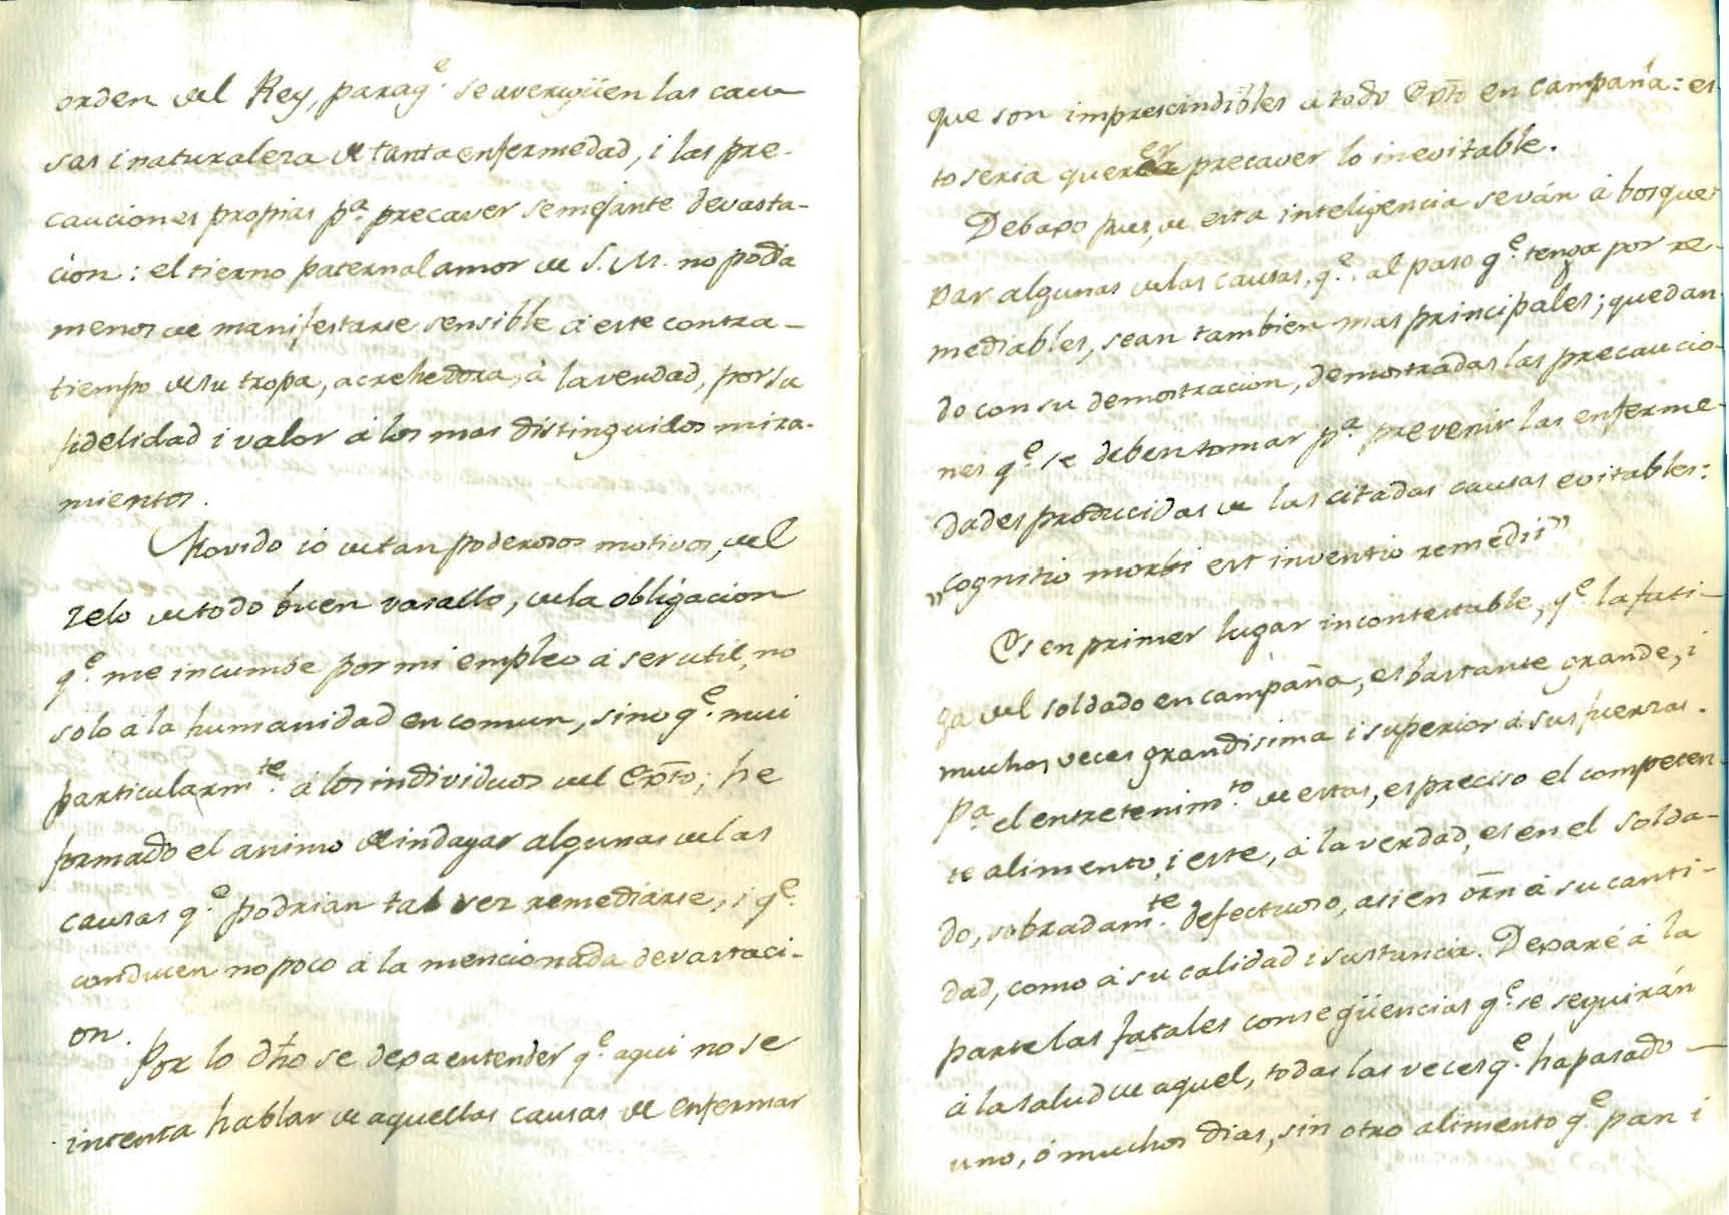 orden del Rey, paraq.e se averigüen las cau
sas i naturaleza de tanta enfermedad, i las pre-
cauciones propias p.a precaver semejante devasta-
cion: el tierno paternal amor de S. M. no podia
menos de manifestarse sensible á este contra-
tiempo de su tropa, acrehedora, à la verdad, por su
fidelidad i valor á los mas distinguidos mira-
mientos.
Movido io de tan poderosos motivos, del
zelo de todo buen vasallo, de la obligacion
q.e me incumbe por mi empleo á ser util, no
solo á la humanidad en comun, sino q.e mui
particularm.te á los individuos del Exto; he
formado el animo de indagar algunas de las
causas q.e podrian tal vez remediarse, i q.e
conducen no poco á la mencionada devastaci-
on.
Por lo dho se dexa entender q.e aqui no se
intenta hablar de aquellas causas de enfermar
que son imprescindibles á todo Exto en campaña: es-
to seria querer precaver lo inevitable.
Debaxo pues, de esta inteligencia se ván á bosque-
xar algunas de las causas, q.e al paso q.e tenga por re-
mediables, sean tambien mas principales; quedan-
do con su demostracion, demostradas las precaucio-
nes q.e se deben tomar p.a prevenir las enferme-
dades producidas de las citadas causas evitables:
"cognitio morbi est inventio remedii"
Es en primer lugar incontestable, q.e la fati-
ga del soldado en campaña, es bastante grande, i
muchas veces grandisima i superior á sus fuerzas.
P.a el entretenim.to de estas, es preciso el competen-
te alimento, i este, á la verdad, es en el solda-
do, sobradam.te defectuoso, asi en orn á su canti-
dad, como á su calidad i sustancia. Dexaré á la
parte las fatales conseqüencias q.e se seguirán
á la salud de aquel, todas las veces q.e ha pasado
uno, ó muchos dias, sin otro alimento q.e pan i